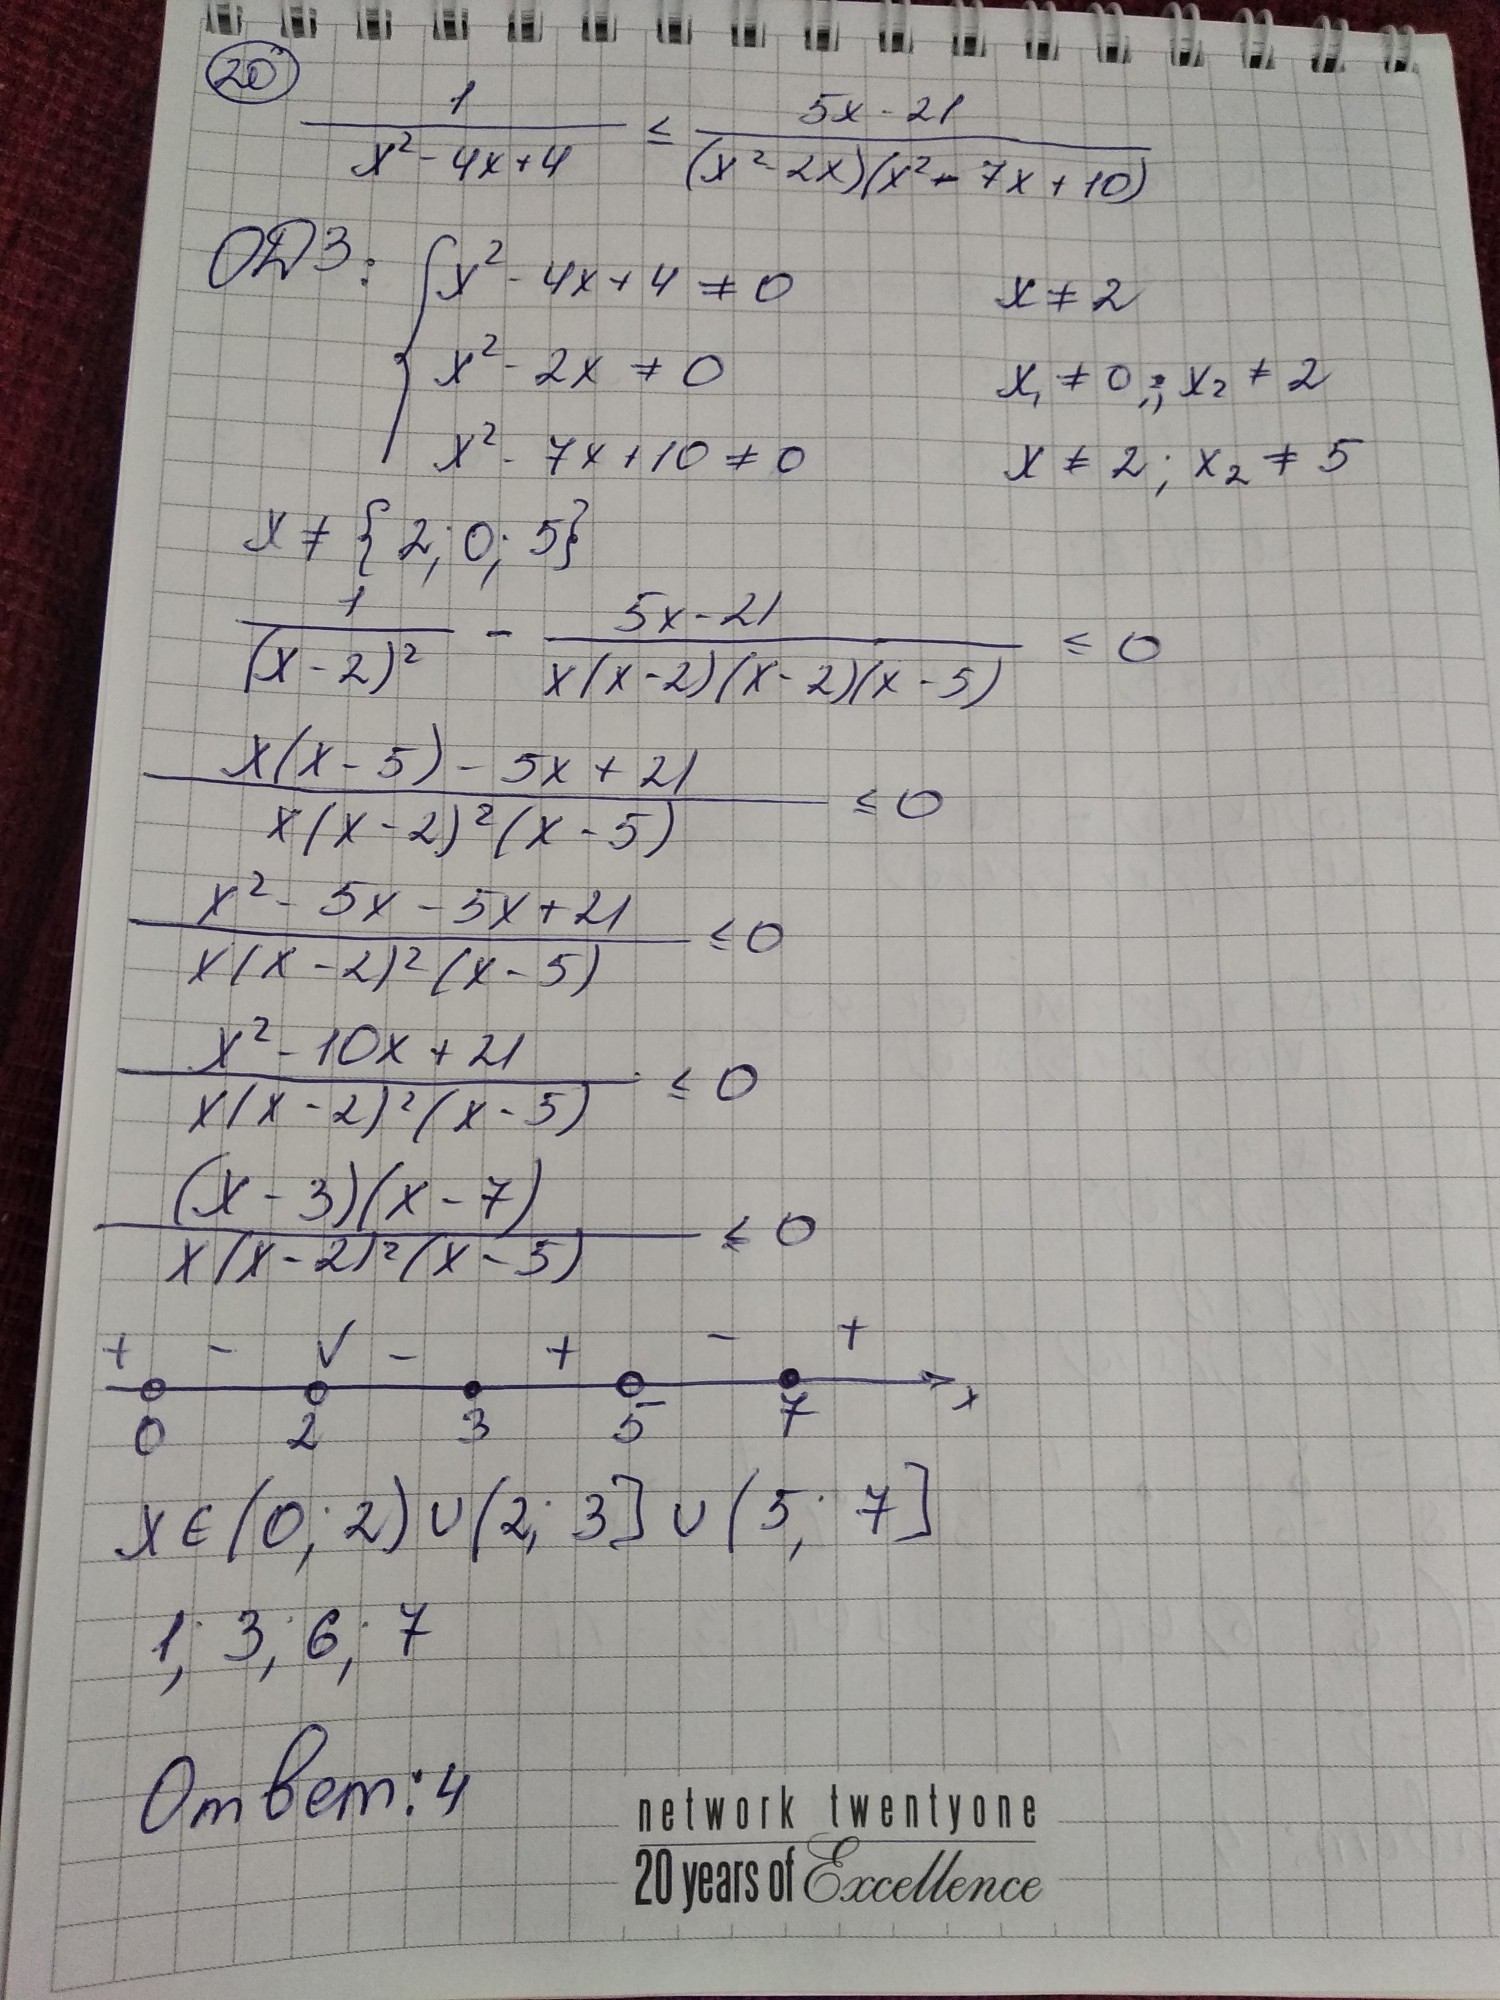 20
1/(x² - 4x + 4) ≤ (5x - 21)/((x² - 2x)(x² - 7x + 10))
ОДЗ: { x² - 4x + 4 ≠ 0 x ≠ 2
x² - 2x ≠ 0 x₁ ≠ 0; x₂ ≠ 2
x² - 7x + 10 ≠ 0 x ≠ 2; x₂ ≠ 5
x ≠ {2; 0; 5}
1/(x - 2)² - (5x - 21)/(x(x - 2)(x - 2)(x - 5)) ≤ 0
(x(x - 5) - 5x + 21)/(x(x - 2)²(x - 5)) ≤ 0
(x² - 5x - 5x + 21)/(x(x - 2)²(x - 5)) ≤ 0
(x² - 10x + 21)/(x(x - 2)²(x - 5)) ≤ 0
((x - 3)(x - 7))/(x(x - 2)²(x - 5)) ≤ 0
+ - √ - + - +
0 2 3 5 7 x
x ∈ (0; 2) ∪ (2; 3] ∪ (5; 7]
1; 3; 6; 7
Ответ: 4
network twentyone
20 years of Excellence